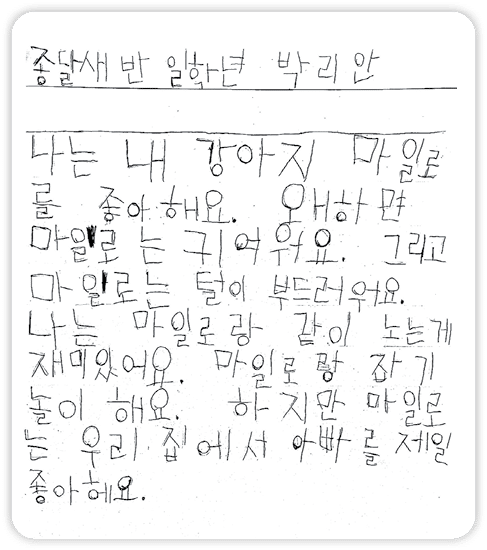 종달새 반 일학년 박리안
나는 내 강아지 마일로
를 좋아해요. 왜하면
마일로는 귀여워요. 그리고
마일로는 털이 부드러워요.
나는 마일로랑 같이 노는게
재미있어요. 마일로랑 잡기
놀이 해요. 하지만 마일로
는 우리 집에서 아빠를 제일
좋아헤요.